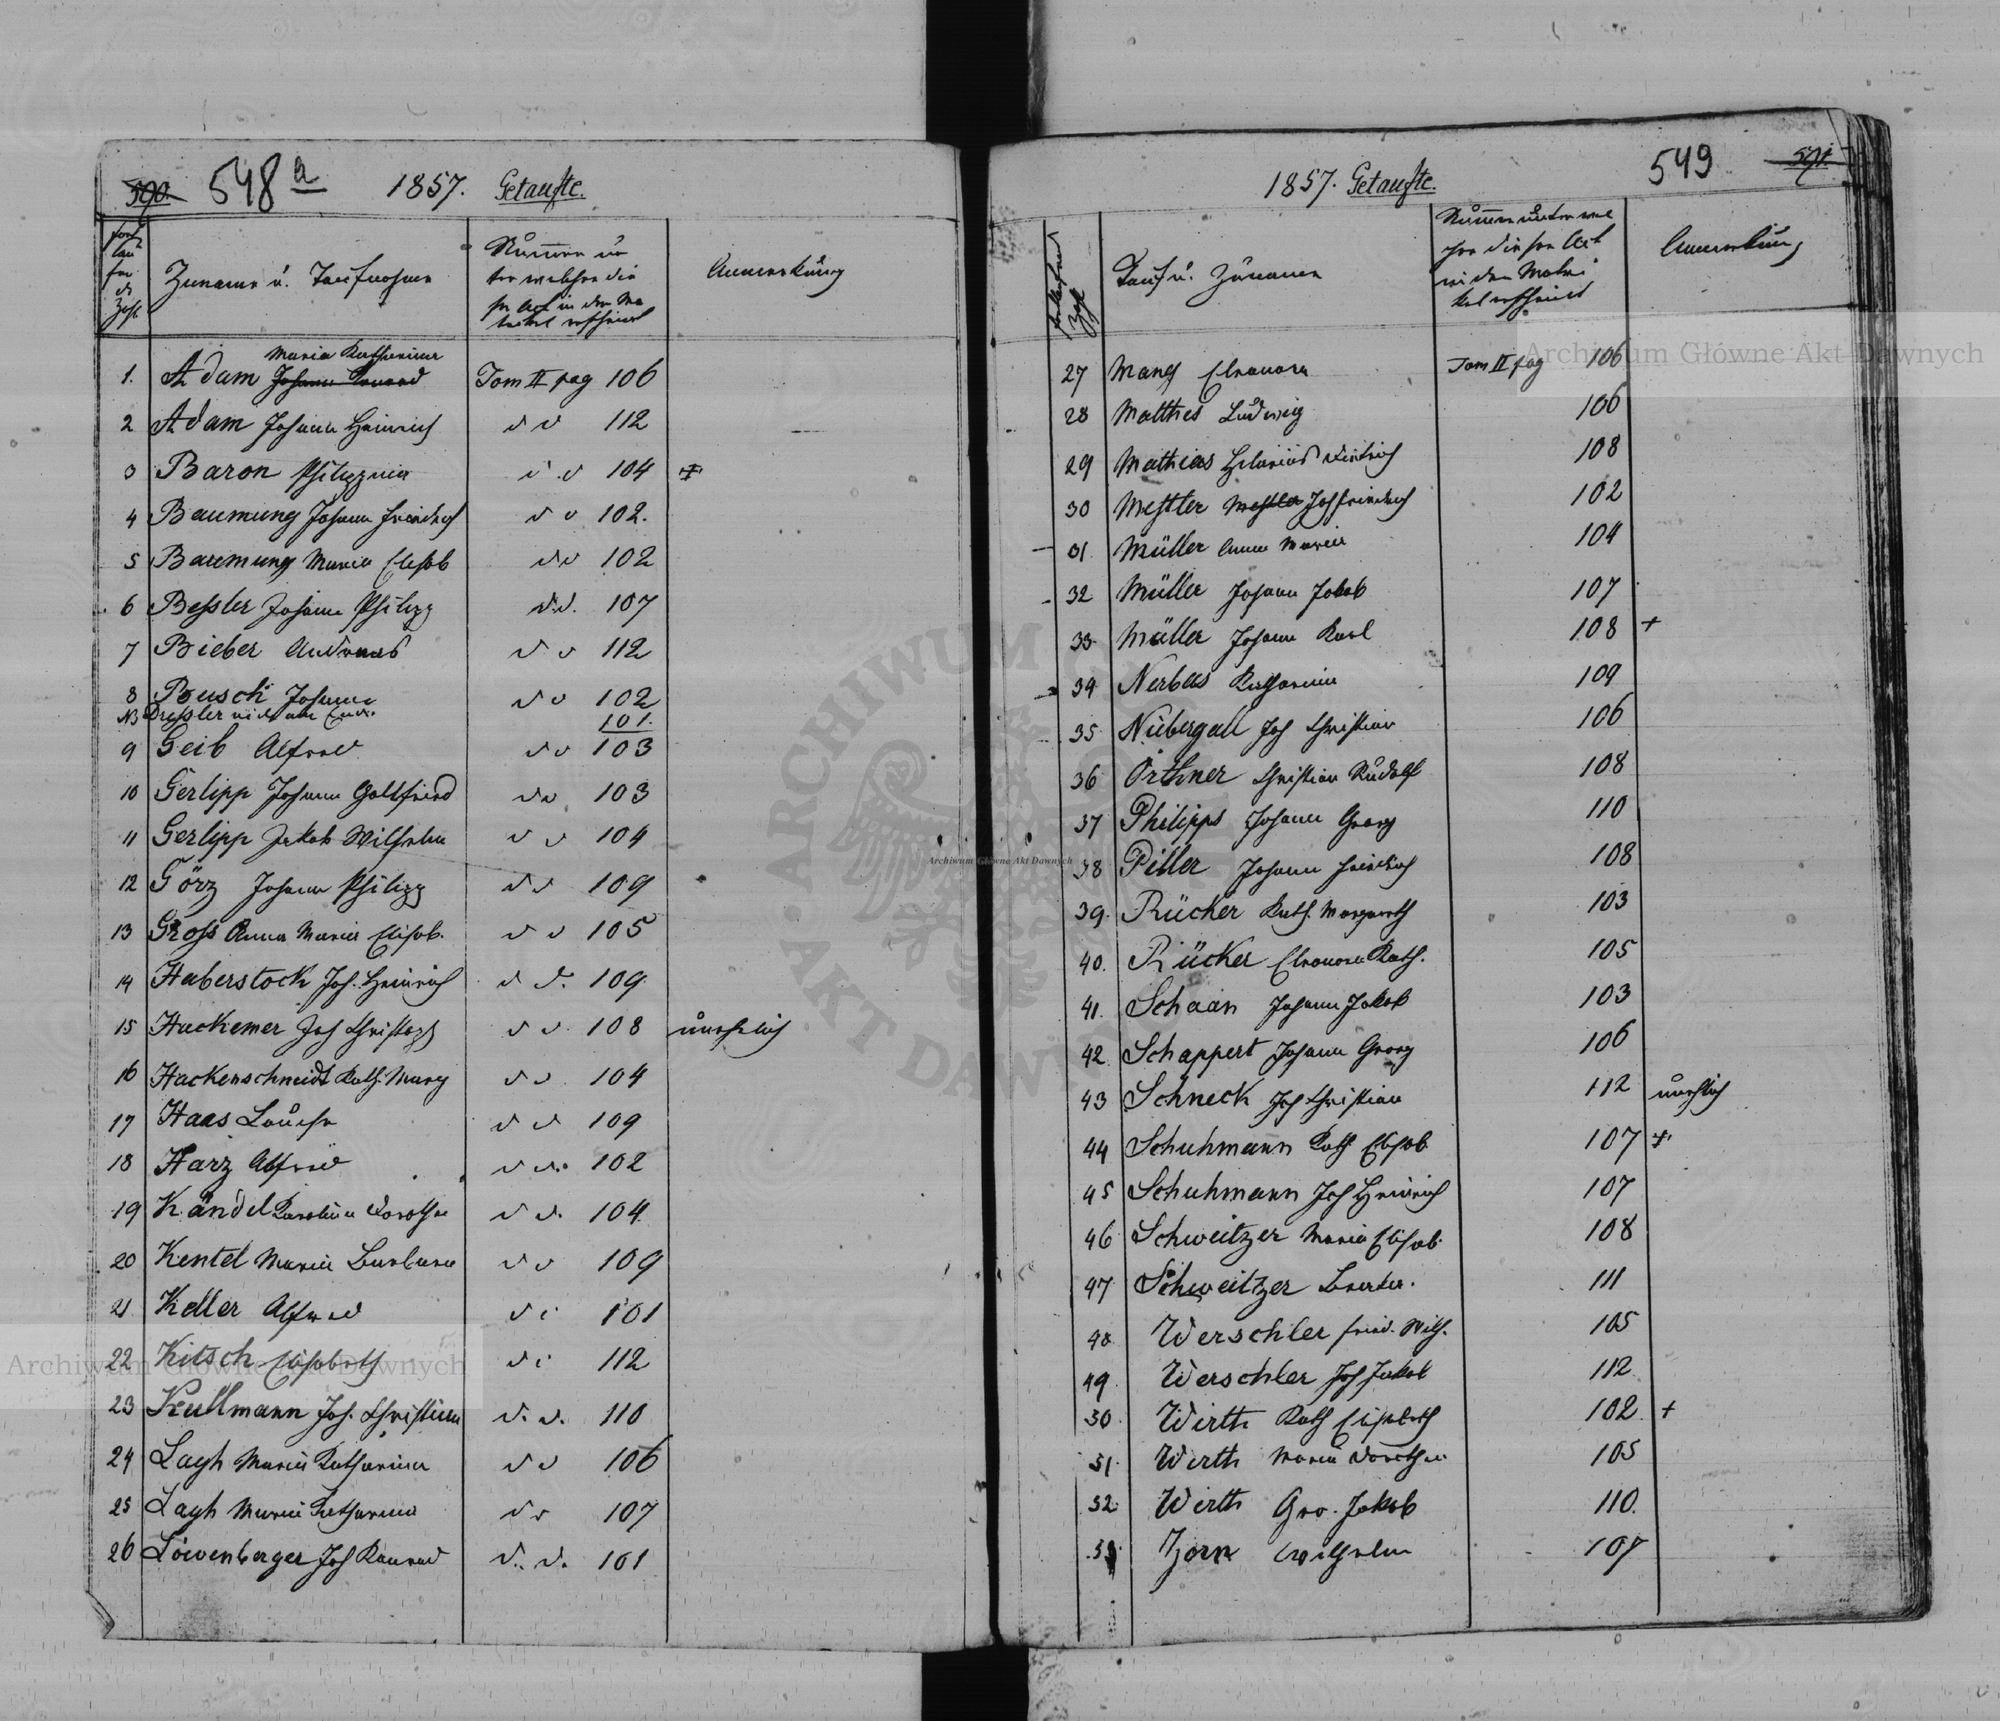 590. 548 a 1857. Getaufte.
fort
lau
fen
de
Zahl
Zuname u. Taufname
Nummer un
ter welcher die
ser Act in der Ma
trikel erscheint
Anmerkung
Maria Katharina
1. Adam Johann Konrad Tom II pag 106
2 Adam Johann Heinrich d o 112
3 Baron Philippina d o 104 +
4 Baumung Johann Friedrich d o 102.
5 Baumung Maria Elisab do 102
6 Bessler Johann Philipp d.o. 107
7 Bieber Andreas d o 112
8 Busch Johann d o 102
NB Dressler 101.
9 Geib Alfred do 103
10 Gerlipp Johann Gottfried do 103
11 Gerlipp Jakob Wilhelm d o 104
12 Görz Johann Philipp d o 109
13 Gross Anna Maria Elisab. d o 105
14 Haberstock Joh. Heinrich d o. 109
15 Hackemer Joh Christoph d o. 108 unehelich
16 Hackenschmidt Kath. Marg d o 104
17 Haas Louise d o 109
18 Harz Alfred d o. 102
19 Kändel Karolina Dorothea d o. 104
20 Kentel Maria Barbara d o 109
21 Keller Alfred d o 101
22 Kitsch Elisabeth d o 112
23 Kullmann Joh. Christian d. o. 110
24 Lagh Maria Katharina d o 106
25 Lagh Maria Katharina d o 107
26 Löwenberger Joh Konrad d. o. 101
1857. Getaufte. 549 591.
fortlaufende
Zahl
Tauf u. Zuname
Nummer unter wel
cher dieser Act
in der Matri
kel erscheint
Anmerkung
27 Mang Eleonora Tom II pag 106
28 Matthes Ludwig 106
29 Mathias Hilarius Dietrich 108
30 Mestler Mestler Joh Friedrich 102
31 Müller Anna Maria 104
32 Müller Johann Jakob 107
33 Müller Johann Karl 108 +
34 Nerbas Katharina 109
35 Nübergall Joh Christian 106
36 Orthner Christian Rudolf 108
37 Philipps Johann Georg 110
38 Piller Johann Friedrich 108
39. Rücker Kath. Margareth 103
40. Rücker Eleonora Kath. 105
41. Schaan Johann Jakob 103
42 Schappert Johann Georg 106
43 Schneck Joh Christian 112 unehelich
44 Schuhmann Kath Elisab 107 +
45 Schuhmann Joh Heinrich 107
46 Schweitzer Maria Elisab 108
47 Schweitzer Berta. 111
48 Werschler Fried. Wilh. 105
49 Werschler Joh Jakob 112
50 Wirth Kath Elisabeth 102 +
51 Wirth Maria Dorothea 105
52 Wirth Geo. Jakob 110.
53 Zorn Wilhelm 107
Archiwum Główne Akt Dawnych
Archiwum Główne Akt Dawnych
Archiwum Główne Akt Dawnych
ARCHIWUM GŁÓWNE AKT DAWNYCH